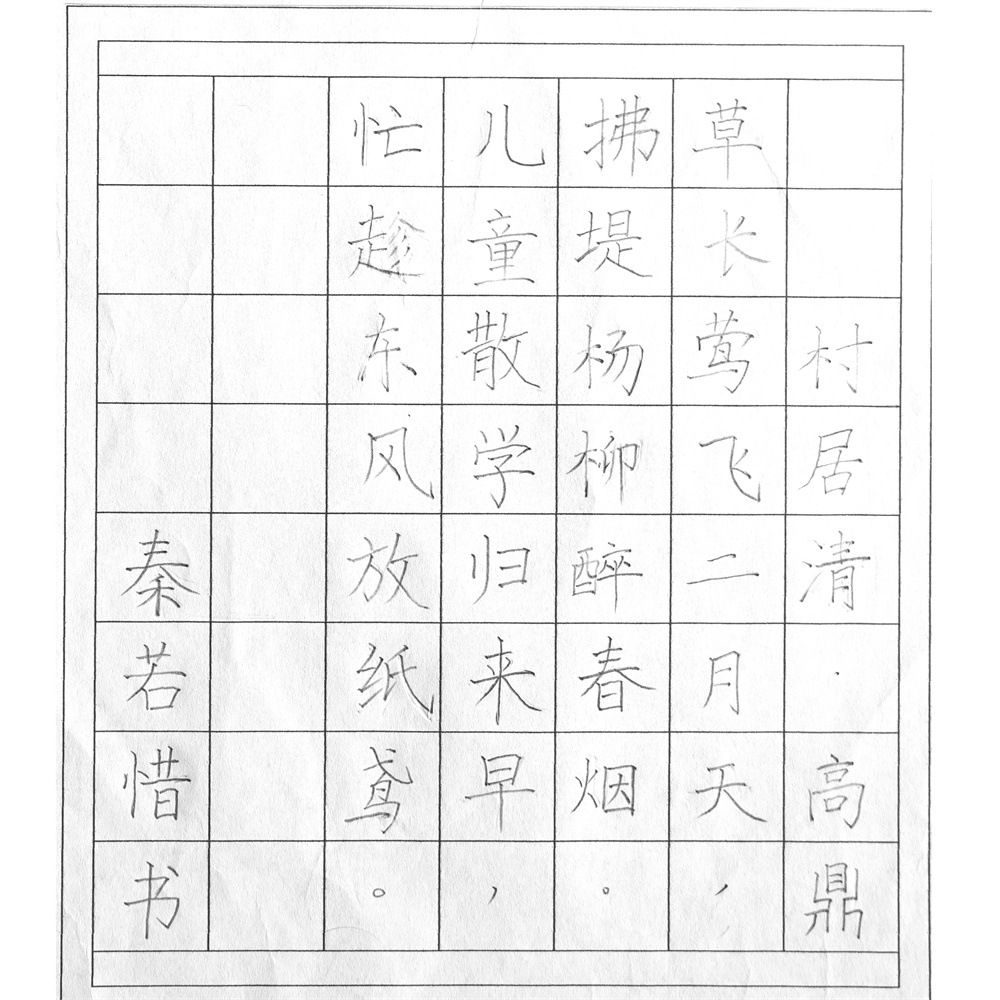 村居清·高鼎
草长莺飞二月天，
拂堤杨柳醉春烟。
儿童散学归来早，
忙趁东风放纸鸢。
秦若惜书